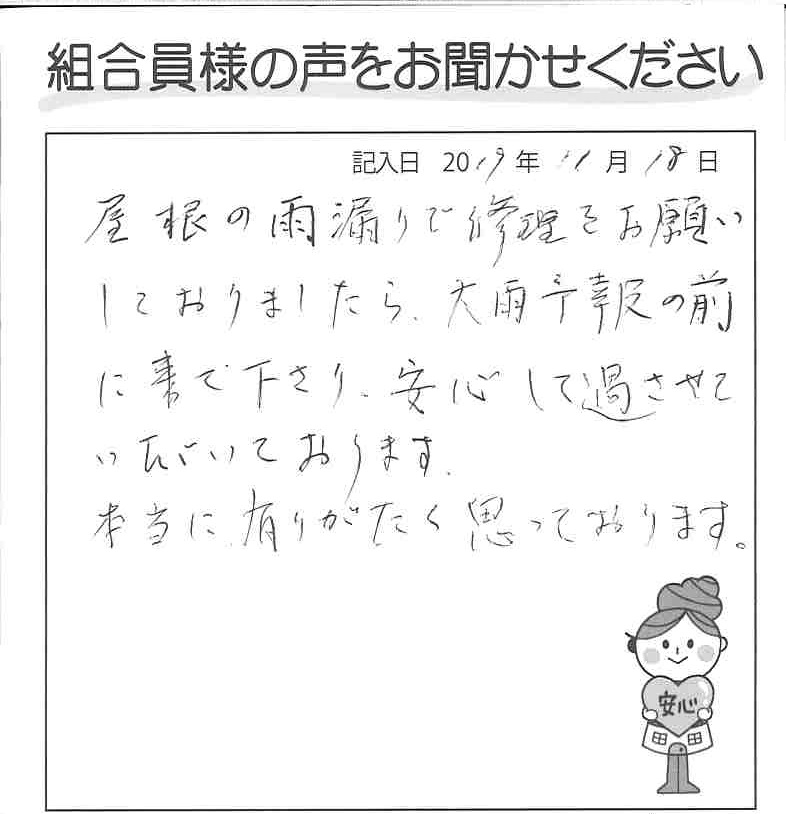 組合員様の声をお聞かせください
記入日 2019年 11月 18日
屋根の雨漏りで修理をお願い
しておりましたら、大雨予報の前
に来て下さり、安心して過させて
いただいております。
本当に有りがたく思っております。
安心